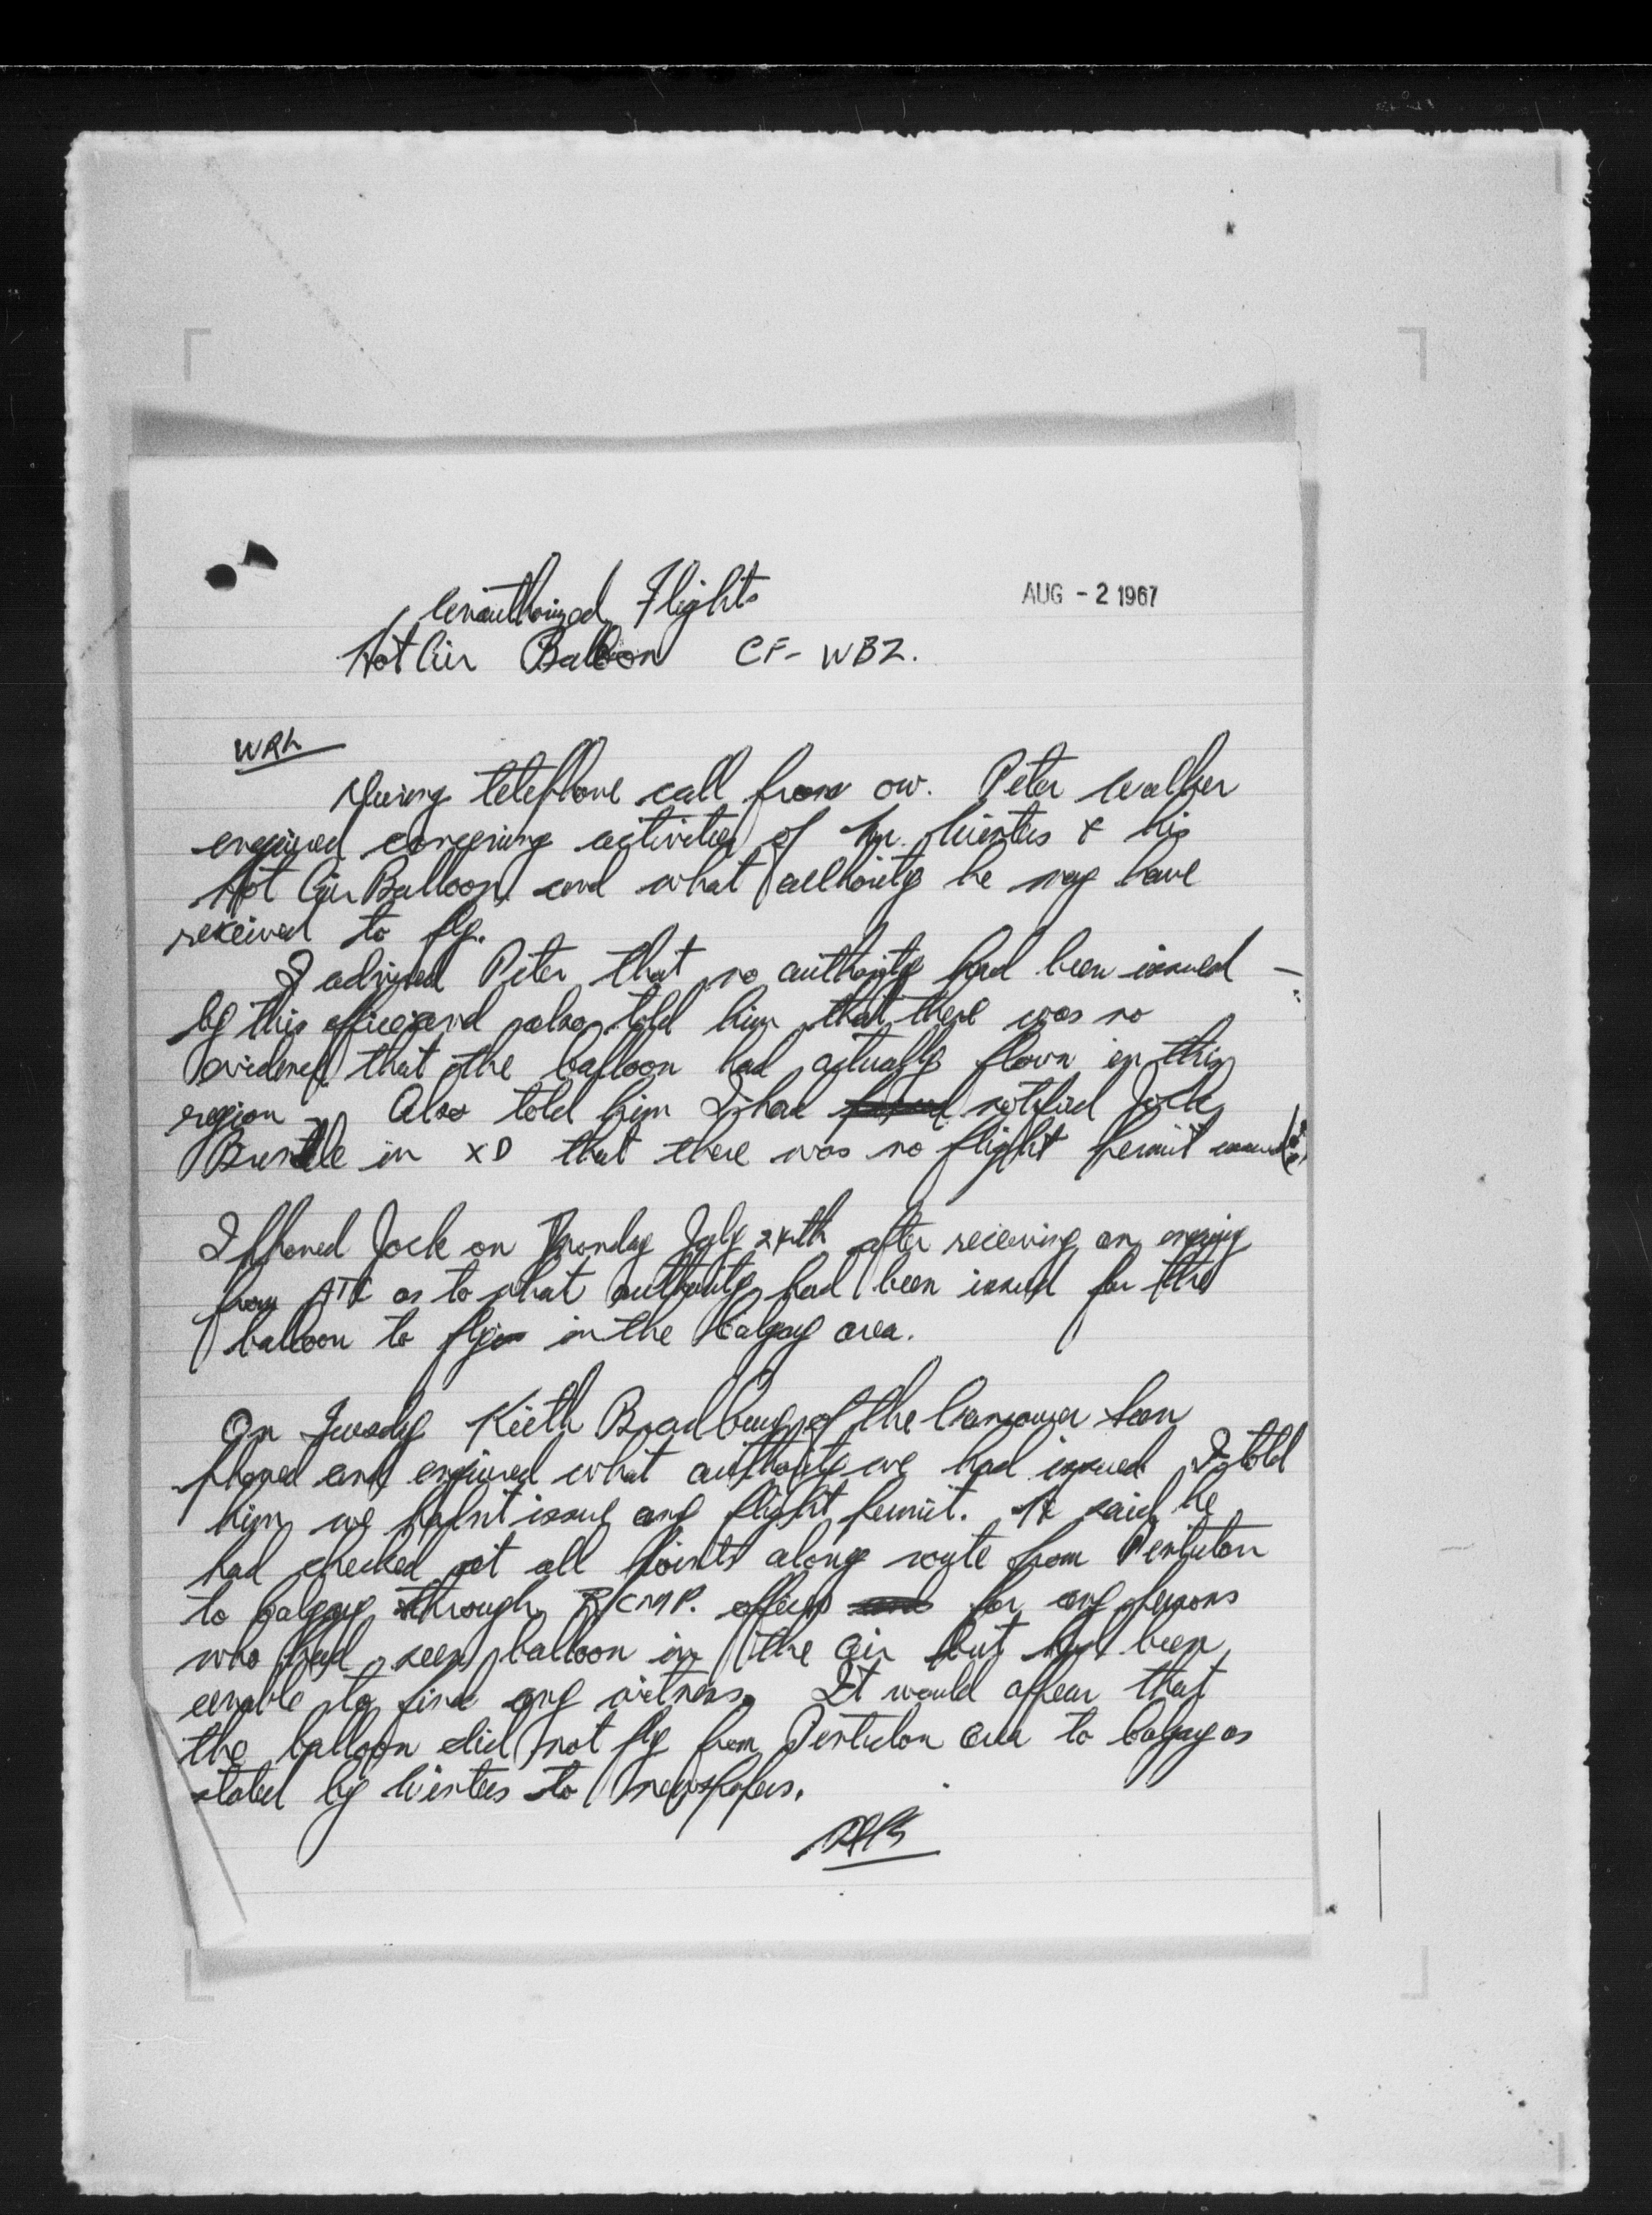 Unauthorized Flights
AUG - 2 1967
Hot Air Balloon CF- WBZ.
WRL
During telephone call from OW. Peter Walker
enquired concerning activities of Mr. Winters & his
Hot Air Balloon and what authority he may have
received to fly.
I advised Peter that no authority had been issued
by this office and also told him that there was no
evidence that the balloon had actually flown in this
region. Also told him I had notified Jock
in XD that there was no flight permit issued
I phoned Jock on Monday July 24th after receiving an enquiry
from ATC as to what authority had been issued for the
balloon to fly in the Calgary area.
On Tuesday Keith Bradbury of the Vancouver Sun
phoned and enquired what authority we had issued I told
him we hadn't issue any flight permit. He said he
had checked at all points along route from Penticton
to Calgary through RCMP. offices for any persons
who had seen balloon in the air but had been
unable to find any witness. It would appear that
the balloon did not fly from Penticton area to Calgary as
stated by Winters to newspapers.